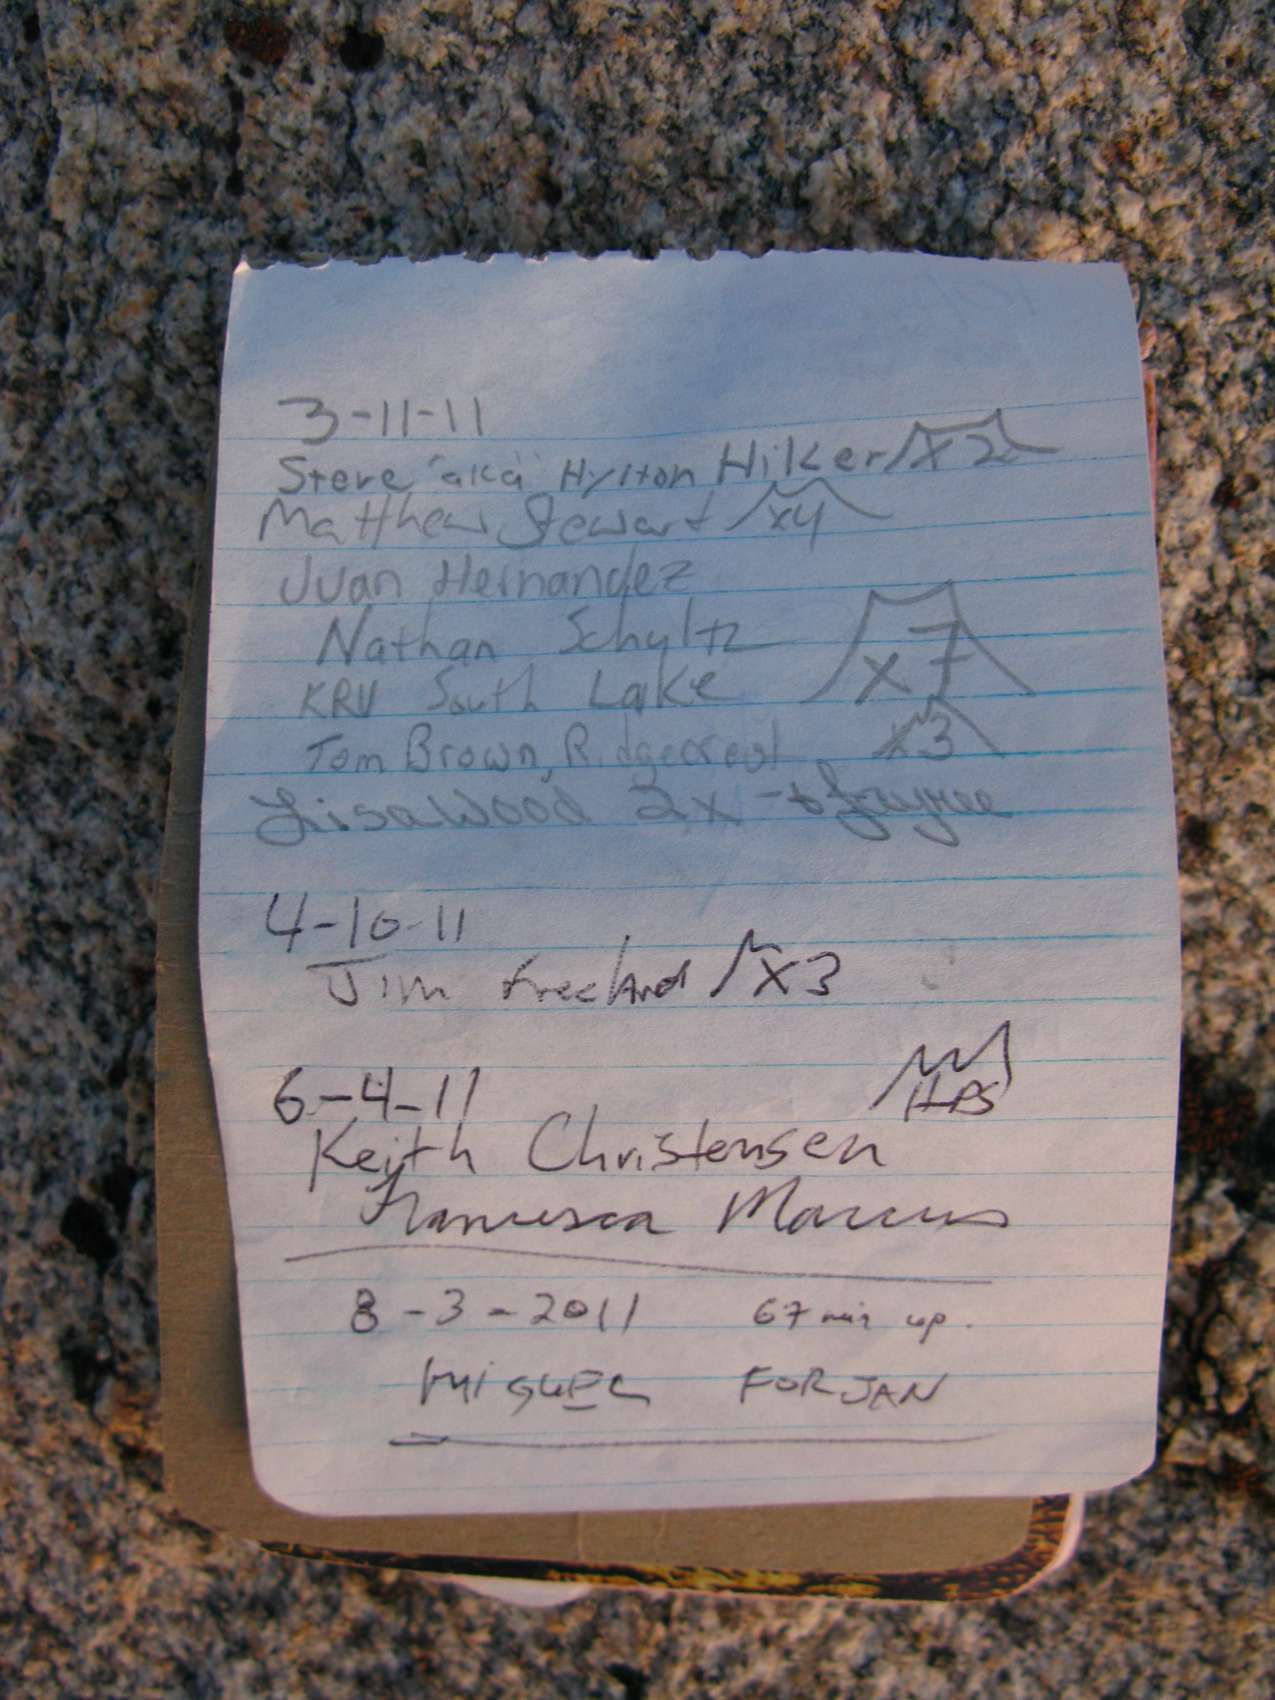 3-11-11
Steve "aka" Hylton Hilker x2
Matthew Stewart x4
Juan Hernandez
Nathan Schultz x7
KRV South Lake
Tom Brown, Ridgecrest x3
Lisa Wood 2x
4-10-11
Jim Freeland x3
6-4-11 HPS
Keith Christensen
Francesca Marcus
8-3-2011 67 min up.
MIGUEL FORJAN